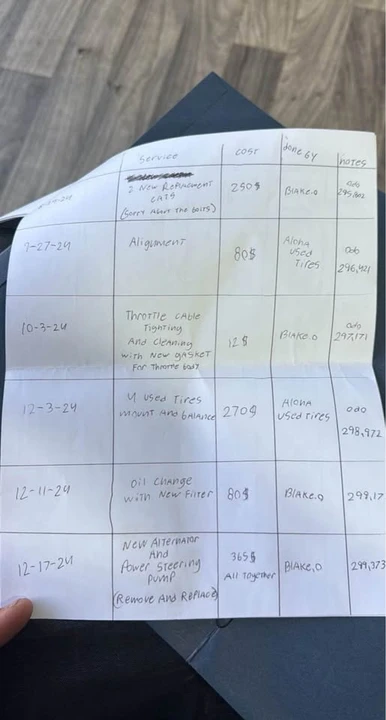 Service COST done by notes
2 New Replacment 250$ BLAKE.O Odo
CATS
(Sorry About The bolts)
7-27-24 Alignment 80$ Aloha Odo
Used 296,421
Tires
10-3-24 Throttle Cable 12$ BLAKE.O Odo
Tighting 297,171
And Cleaning
with New gASKET
For Throttle body
12-3-24 4 Used Tires 270$ Aloha Odo
Mount And balance Used Tires 298,972
12-11-24 Oil Change 80$ BLAKE.O
with New Filter
12-17-24 New Alternator 365$ BLAKE.O 299,373
And All Together
Power Steering
Pump
(Remove And Replace)